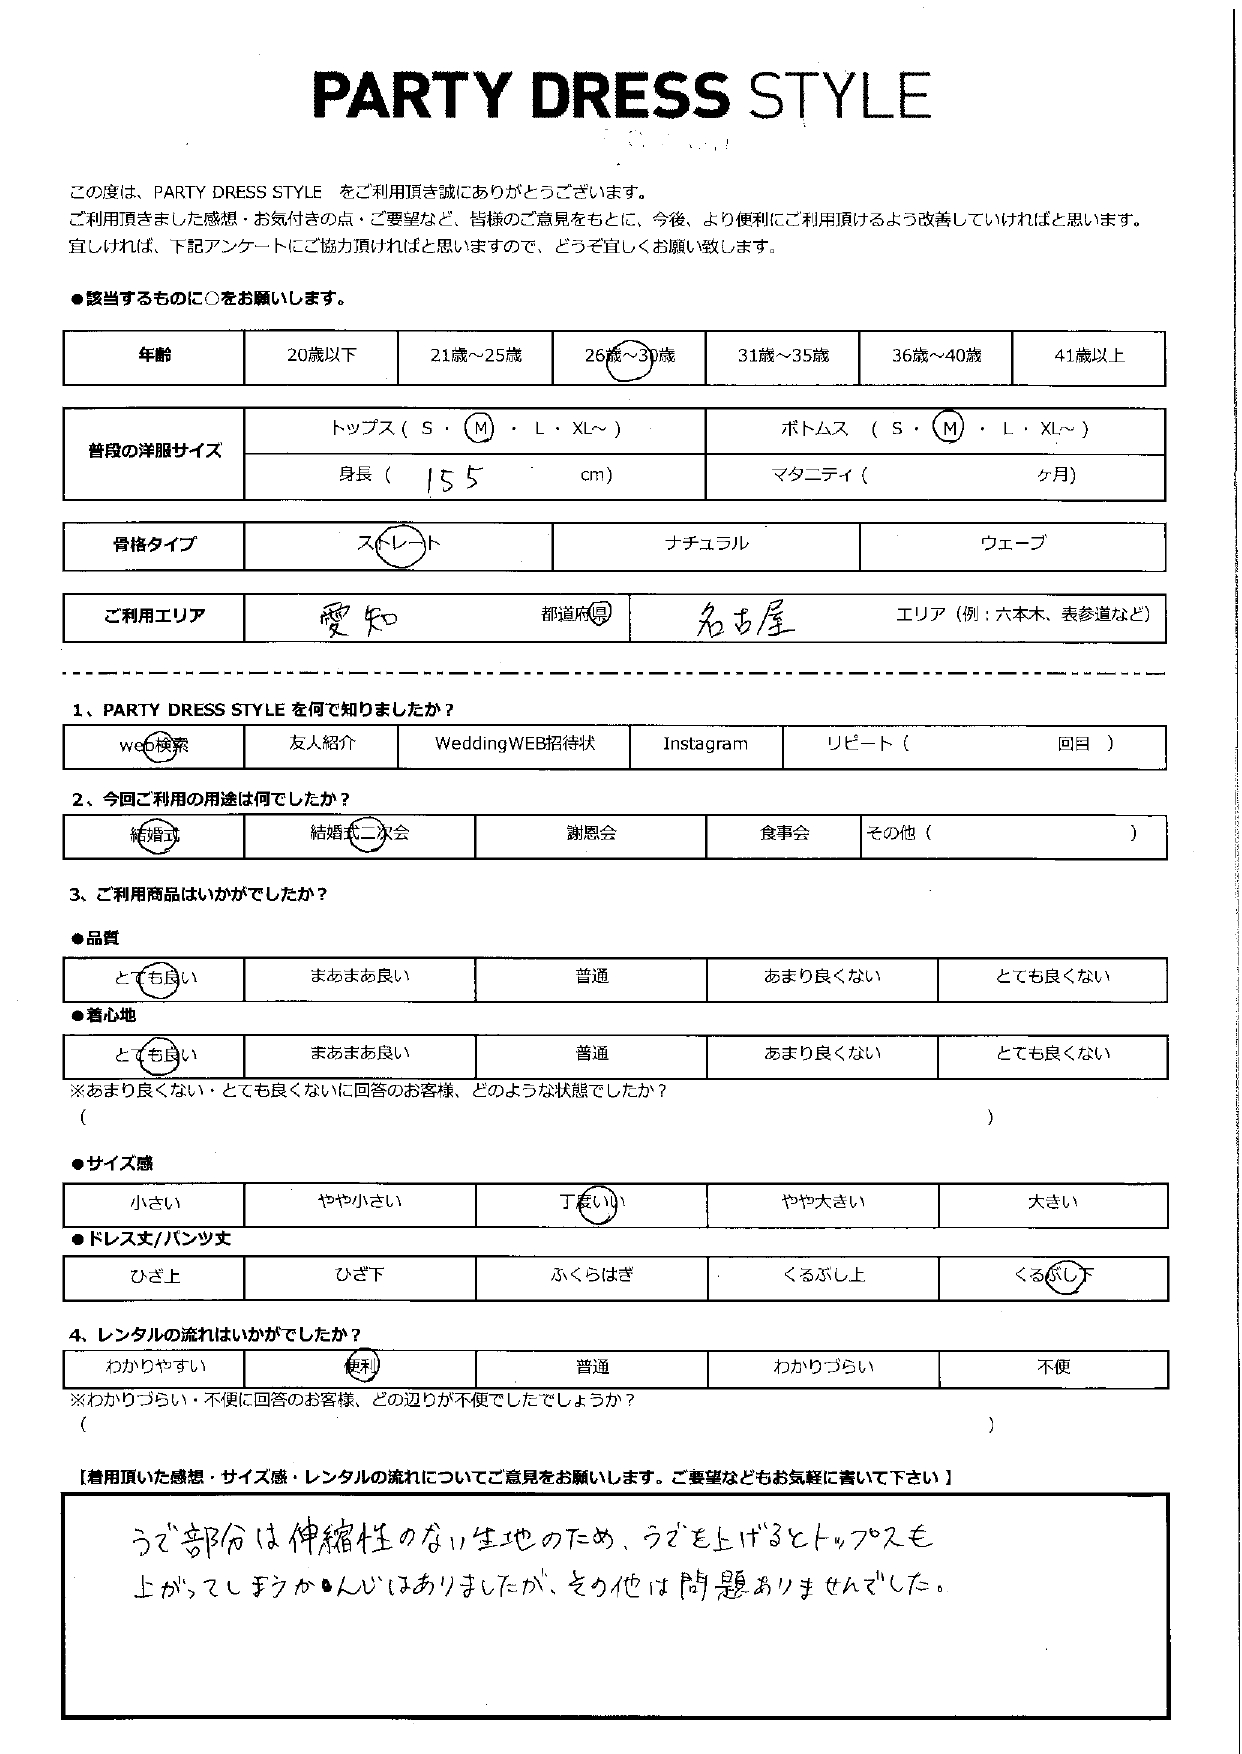 PARTY DRESS STYLE
この度は、PARTY DRESS STYLE　をご利用頂き誠にありがとうございます。
ご利用頂きました感想・お気付きの点・ご要望など、皆様のご意見をもとに、今後、より便利にご利用頂けるよう改善していければと思います。
宜しければ、下記アンケートにご協力頂ければと思いますので、どうぞ宜しくお願い致します。
●該当するものに○をお願いします。
年齢 20歳以下 21歳～25歳 26歳～30歳 31歳～35歳 36歳～40歳 41歳以上
普段の洋服サイズ トップス ( S ・ M ・ L ・ XL～ ) ボトムス ( S ・ M ・ L ・ XL～ )
身長 ( 155 cm) マタニティ ( ヶ月)
骨格タイプ ストレート ナチュラル ウェーブ
ご利用エリア 愛知 都道府県 名古屋 エリア（例：六本木、表参道など）
1、PARTY DRESS STYLE を何で知りましたか？
web検索 友人紹介 WeddingWEB招待状 Instagram リピート（ 回目 ）
2、今回ご利用の用途は何でしたか？
結婚式 結婚式二次会 謝恩会 食事会 その他（ ）
3、ご利用商品はいかがでしたか？
●品質
とても良い まあまあ良い 普通 あまり良くない とても良くない
●着心地
とても良い まあまあ良い 普通 あまり良くない とても良くない
※あまり良くない・とても良くないに回答のお客様、どのような状態でしたか？
（ ）
●サイズ感
小さい やや小さい 丁度いい やや大きい 大きい
●ドレス丈/パンツ丈
ひざ上 ひざ下 ふくらはぎ くるぶし上 くるぶし下
4、レンタルの流れはいかがでしたか？
わかりやすい 便利 普通 わかりづらい 不便
※わかりづらい・不便に回答のお客様、どの辺りが不便でしたでしょうか？
（ ）
【着用頂いた感想・サイズ感・レンタルの流れについてご意見をお願いします。ご要望などもお気軽に書いて下さい 】
うで部分は伸縮性のない生地のため、うでを上げるとトップスも
上がってしまうかんじはありましたが、その他は問題ありませんでした。